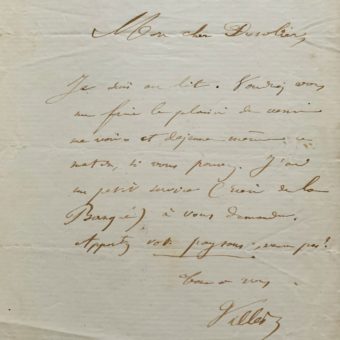 Mon cher Desoliers,
Je suis au lit. Voudriez vous
me faire le plaisir de venir
me voir et déjeuner même ce
matin, si vous pouvez. J'ai
un petit service (
) à vous demander.
Apportez votre
Tout à vous
Villers